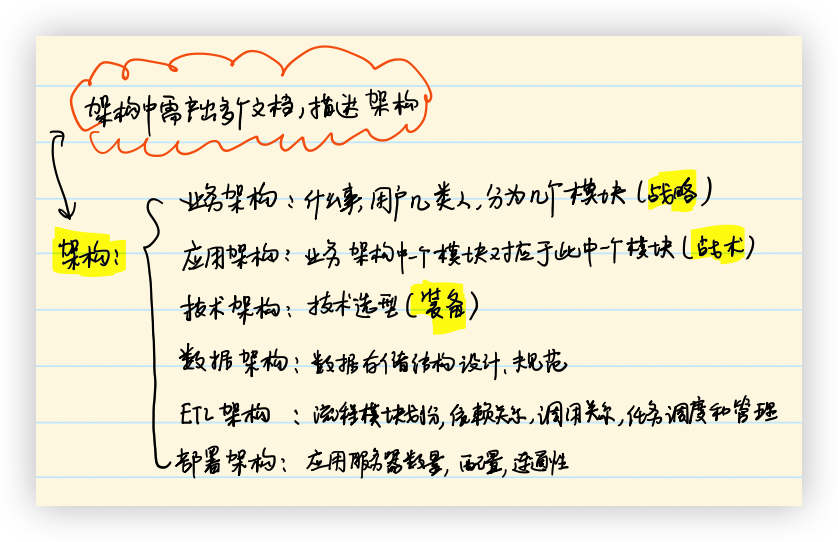 架构中需产出多个文档,描述架构
业务架构：什么事,用户几类人,分为几个模块(战略)
架构：
应用架构：业务架构中一个模块对应于此中一个模块(战术)
技术架构：技术选型(装备)
数据架构：数据存储结构设计、规范
ETL架构：流程模块划份,依赖关系,调用关系,任务调度和管理
部署架构：应用服务器数量,配置,连通性